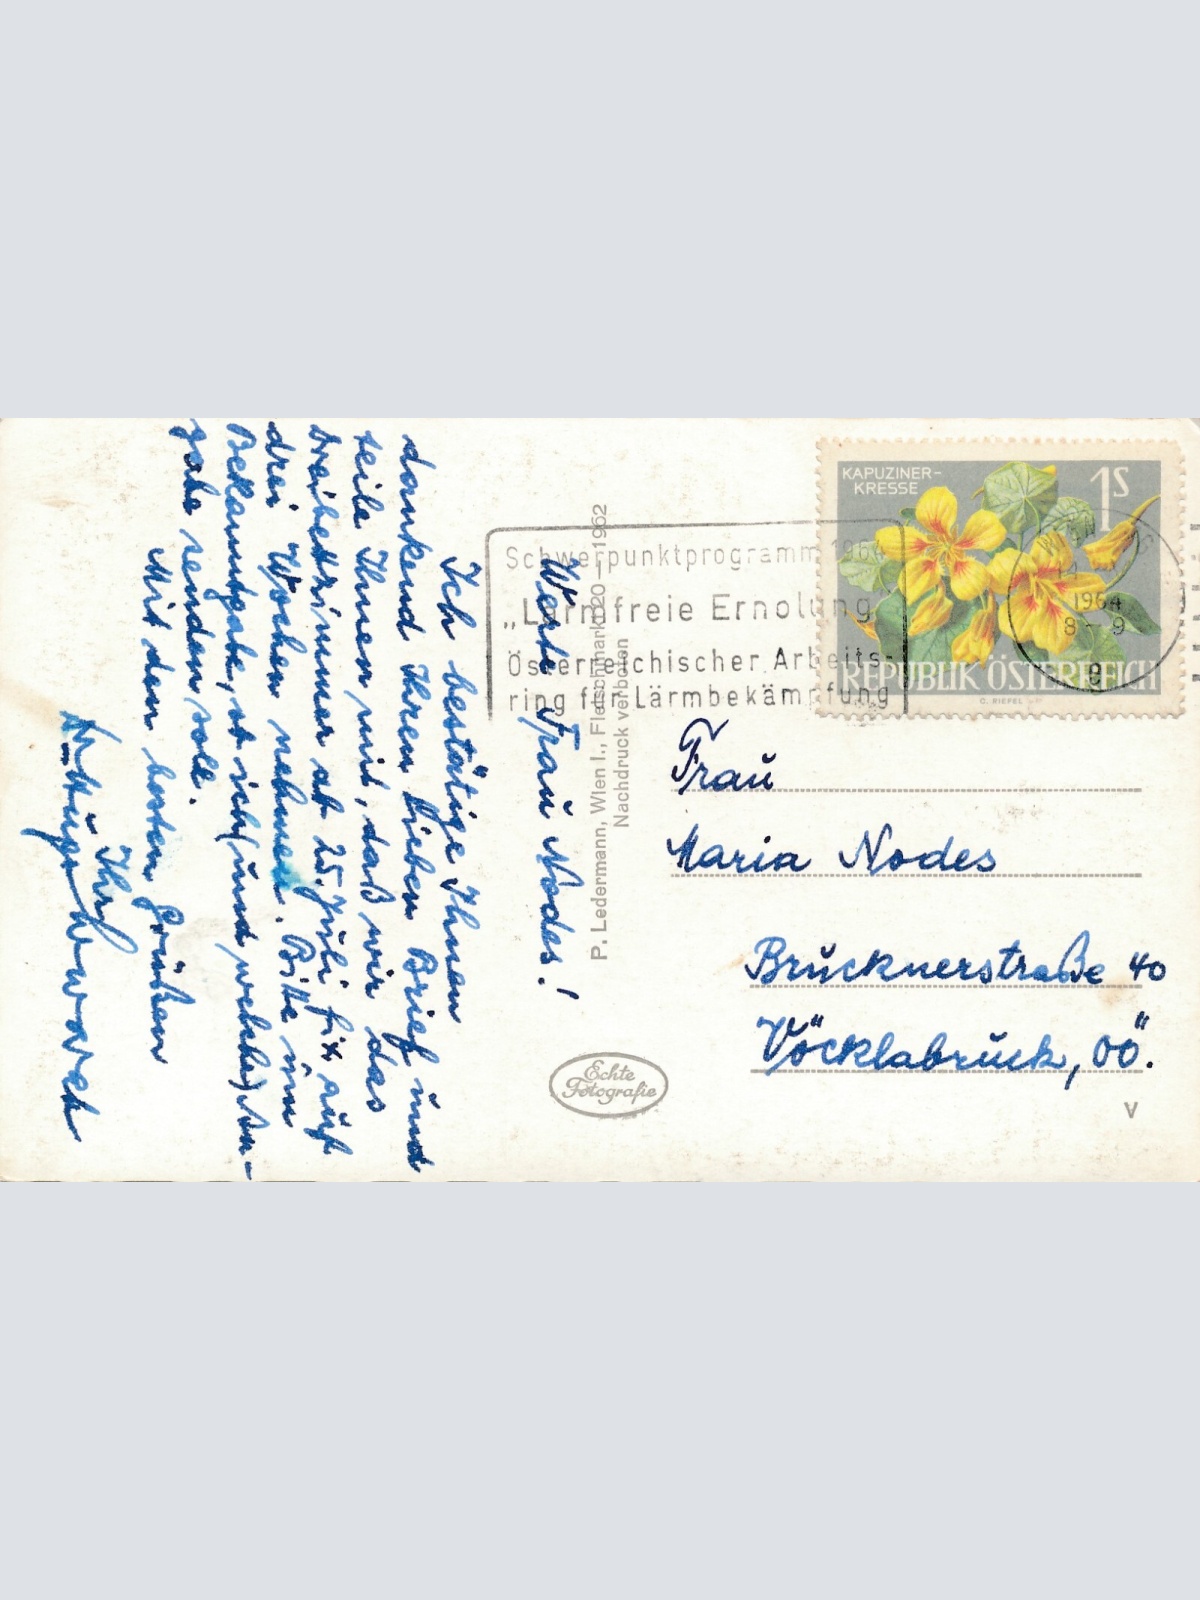 Werte Frau Nodes!
Ich bestätige Ihnen
dankend Ihren lieben Brief und
teile Ihnen mit, daß wir das
Dreibettzimmer ab 25. Juli fix auf
drei Wochen nehmen. Bitte um
Bekanntgabe, ob ich (und welche) An-
gabe senden soll.
Mit den besten Grüßen
Ihr
P. Ledermann, Wien I., Fleischmarkt 20 — 1962
Nachdruck verboten
Echte
Fotografie
Schwerpunktprogramm 1964
„Lärmfreie Erholung
Österreichischer Arbeits-
ring für Lärmbekämpfung
KAPUZINER-
KRESSE
1S
REPUBLIK ÖSTERREICH
WIEN
1964
8 - 9
9
Frau
Maria Nodes
Brucknerstraße 40
Vöcklabruck, OÖ.
V